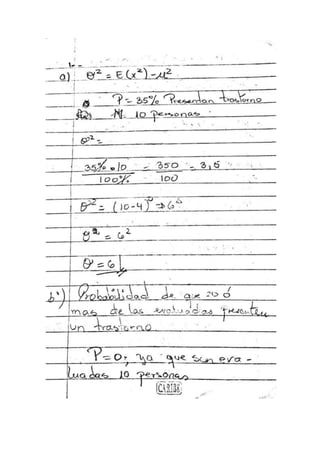 1.-
a) θ² = E(x²) - μ²
P = 35% Presentan trastorno
N. 10 personas
θ² =
35% • 10 = 350 = 3,5
100% 100
θ² = (10-4)² ⇒ 6²
θ² = 6²
θ = 6
b) Probabilidad de que 20 ó
mas de las evaluadas presenten
un trastorno
P = 0, ya que son eva-
luadas 10 personas
CARIBE